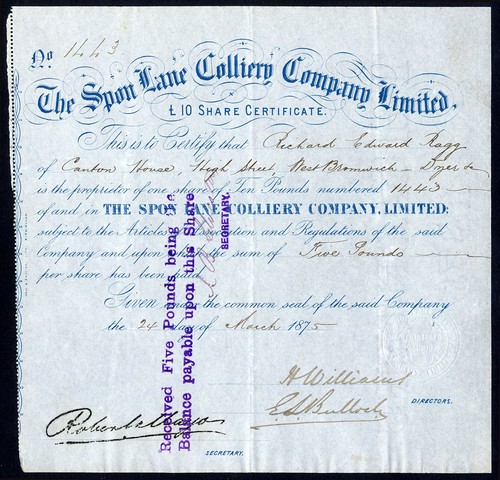 No 1443
The Spon Lane Colliery Company Limited.
£10 SHARE CERTIFICATE.
This is to Certify that Richard Edward Ragg
of Canton House, High Street, West Bromwich – Dryer &c
is the proprietor of one share of Ten Pounds numbered 1443
of and in THE SPON LANE COLLIERY COMPANY, LIMITED;
subject to the Articles of Association and Regulations of the said
Company and upon which the sum of Five Pounds
per share has been paid.
Given under the common seal of the said Company
the 24 day of March 1875
H Williams
E S Bullock
DIRECTORS.
Robert Mayo
SECRETARY.
Received Five Pounds being
Balance payable upon this Share
SECRETARY.